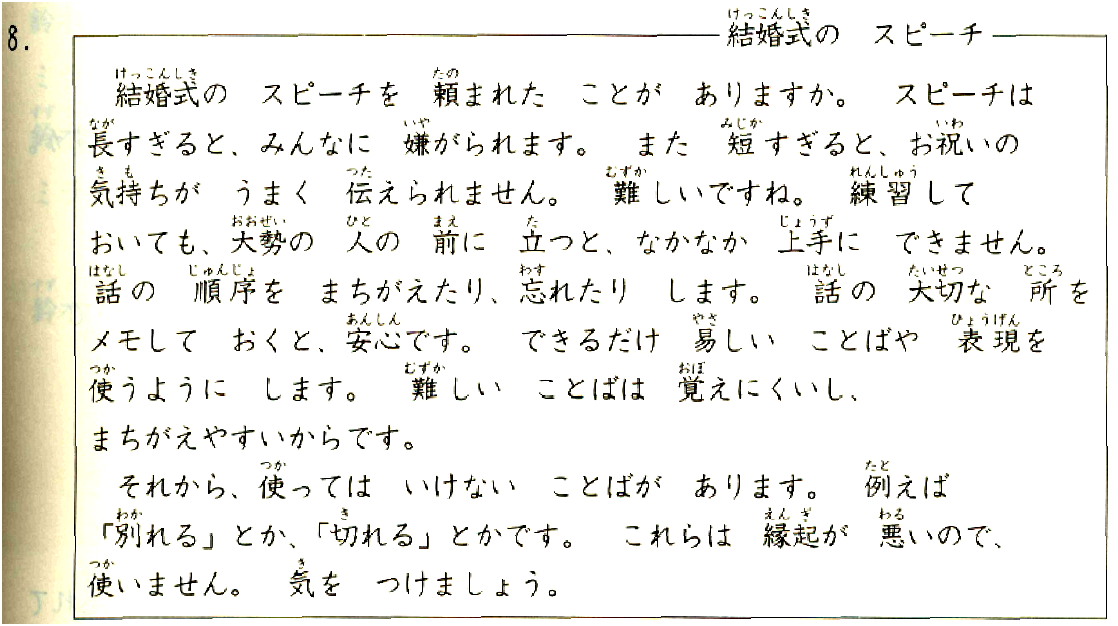 8.
結婚式の スピーチ
結婚式の スピーチを 頼まれた ことが ありますか。 スピーチは
長すぎると、みんなに 嫌がられます。 また 短すぎると、お祝いの
気持ちが うまく 伝えられません。 難しいですね。 練習して
おいても、大勢の 人の 前に 立つと、なかなか 上手に できません。
話の 順序を まちがえたり、忘れたり します。 話の 大切な 所を
メモして おくと、安心です。 できるだけ 易しい ことばや 表現を
使うように します。 難しい ことばは 覚えにくいし、
まちがえやすいからです。
それから、使っては いけない ことばが あります。 例えば
「別れる」とか、「切れる」とかです。 これらは 縁起が 悪いので、
使いません。 気を つけましょう。